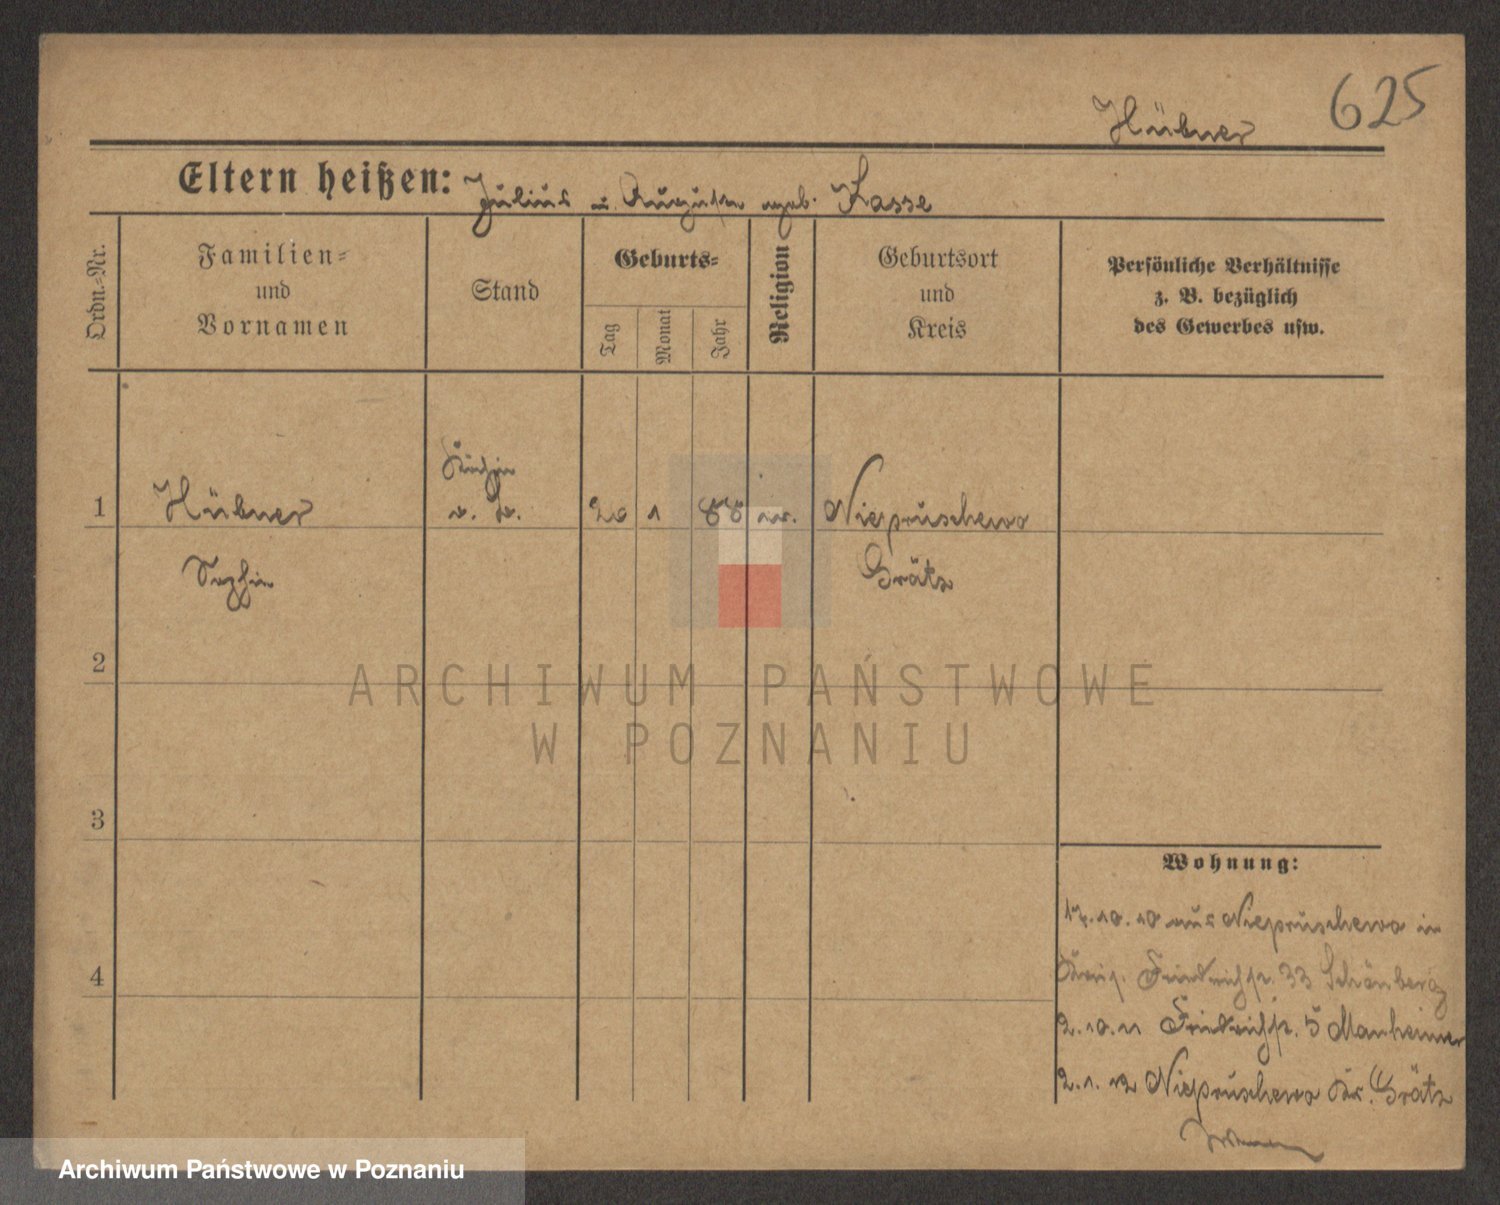 625
Hübner
Eltern heißen: Julius u. Auguste geb. Kasse
Ordn.-Nr.
Familien-
und
Vornamen
Stand
Geburts-
Tag
Monat
Jahr
Religion
Geburtsort
und
Kreis
Persönliche Verhältnisse
z. B. bezüglich
des Gewerbes usw.
1
Hübner
Sophie
20 1 88
Niepruschewo
Grätz
2
3
4
ARCHIWUM PAŃSTWOWE
W POZNANIU
Wohnung:
17.10.10 aus Niepruschewo in
Friedrichstr. 33 Schönberg
2.10.11 Friedrichstr. 5 Manheimer
2.1.12 Niepruschewo Kr. Grätz
Archiwum Państwowe w Poznaniu